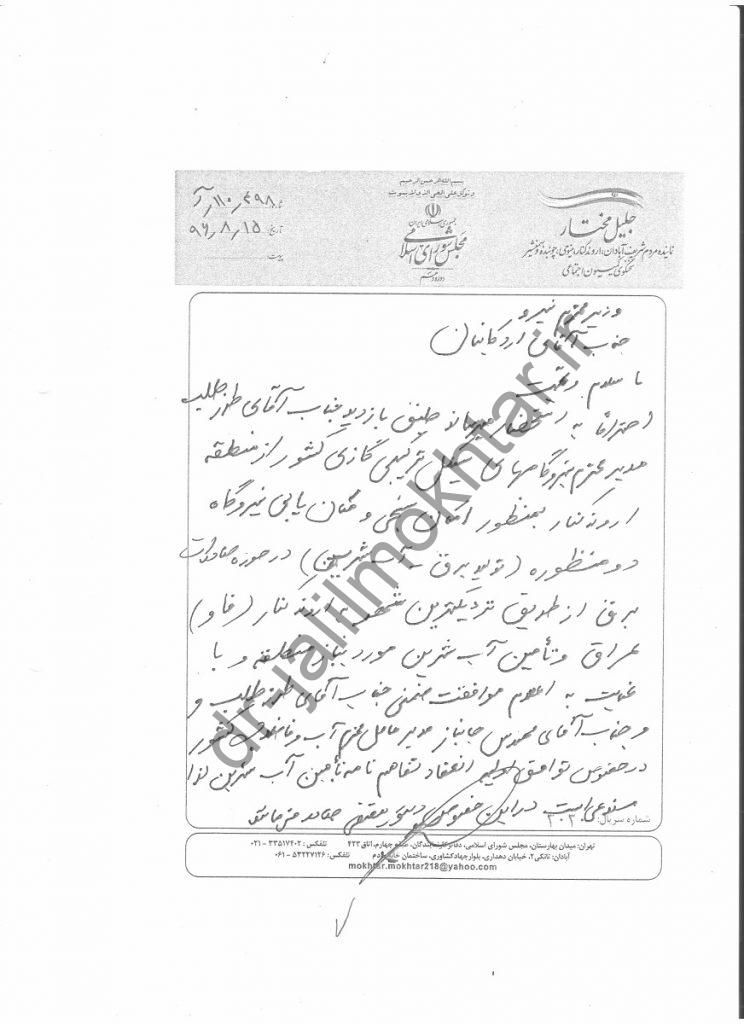 بسم الله الرحمن الرحیم
و توکل علی الحی الذی لا یموت
جمهوری اسلامی ایران
مجلس شورای اسلامی
جلیل مختار
نماینده مردم شریف آبادان، اروندکنار، مینوی، چوئبده و بهمنشیر
سخنگوی کمیسیون اجتماعی
تاریخ: ۹۶٫۸٫۱۵
وزیر محترم نیرو
جناب آقای اردکانیان
با سلام و تحیت
احتراماً به استحضار میرساند طبق بازدید جناب آقای طرز طلب
مدیر محترم نیروگاههای سیکل ترکیبی گازی کشور از منطقه
اروندکنار بمنظور امکان سنجی و مکان یابی نیروگاه
دو منظوره (تولید برق - آب شیرین) در حوزه صادرات
برق از طریق نزدیکترین شهر به اروندکنار (فاو)
عراق و تأمین آب شیرین مورد نیاز منطقه و با
عنایت به اعلام موافقت ضمنی جناب آقای طرز طلب و
و جناب آقای مهندس جانباز مدیر عامل محترم آب و فاضلاب کشور
در خصوص توافق انعقاد تفاهم نامه تأمین آب شیرین لذا
مستدعی است در این خصوص دستور مقتضی صادر فرمائید
شماره سریال: ۳۰۳۰
تهران: میدان بهارستان، مجلس شورای اسلامی، دفاتر نمایندگان، طبقه چهارم، اتاق ۴۲۳ تلفکس: ۳۳۵۱۷۴۰۲ - ۰۲۱
آبادان: تانکی ۲، خیابان دهداری، بلوار جهاد کشاورزی، ساختمان خانه مردم تلفکس: ۵۳۲۲۷۱۲۶ - ۰۶۱
mokhtar.mokhtar218@yahoo.com
dr.jalilmokhtar.ir